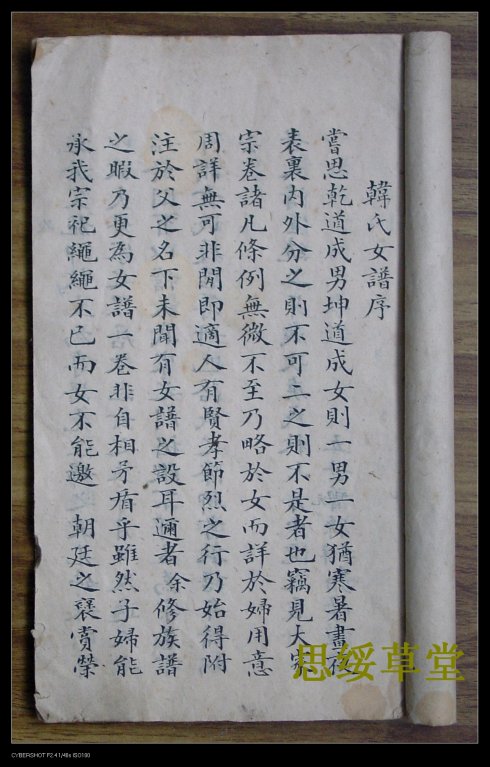 韓氏女譜序
嘗思乾道成男坤道成女則一男一女猶寒暑晝夜
表裏內外分之則不可二之則不是者也竊見大家
宗卷諸凡條例無微不至乃略於女而詳於婦用意
周詳無可非閒即適人有賢孝節烈之行乃始得附
注於父之名下未聞有女譜之設耳邇者余修族譜
之暇乃更為女譜一卷非自相矛盾乎雖然子婦能
承我宗祀繩繩不已而女不能邀朝廷之襃賞榮
思綏草堂
CYBERSHOT F2.4 1/48s ISO100